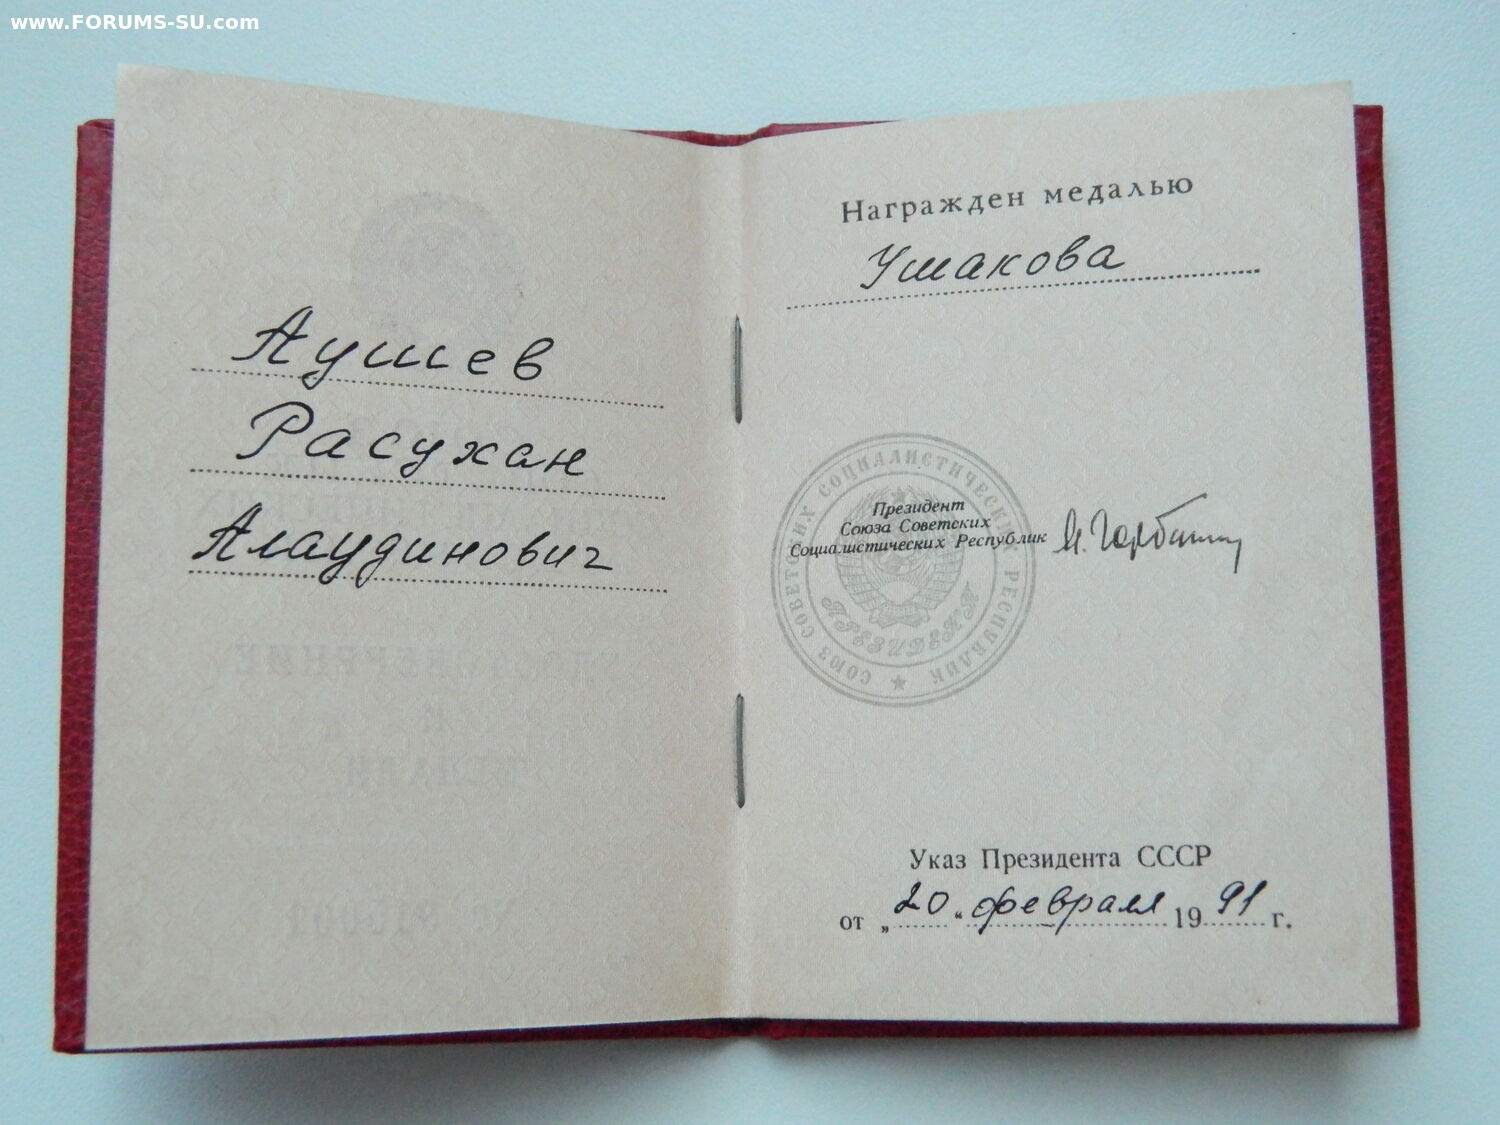 www.FORUMS-SU.com
Аушев
Расухан
Алаудинович
Награжден медалью
Ушакова
Президент
Союза Советских
Социалистических Республик
М. Горбачев
СОЮЗ СОВЕТСКИХ СОЦИАЛИСТИЧЕСКИХ РЕСПУБЛИК
ПРЕЗИДЕНТ
Указ Президента СССР
от „20“ февраля 1991 г.